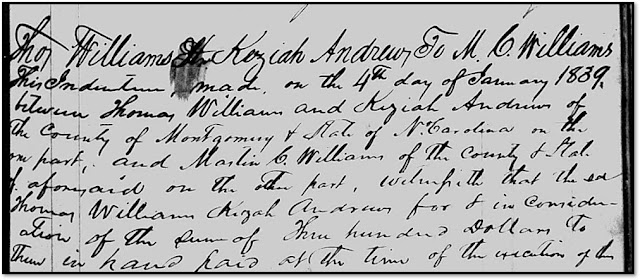 Thos Williams Keziah Andrews To M. C. Williams
This Indenture made, on the 4th day of January 1839,
between Thomas Williams and Keziah Andrews of
the County of Montgomery & State of N. Carolina on the
one part, and Martin C. Williams of the County & State
aforesaid on the other part, witnesseth that the sd
Thomas Williams Kizah Andrews for & in consider-
ation of the sum of Three hundred Dollars to
them in hand paid at the time of the execution of this